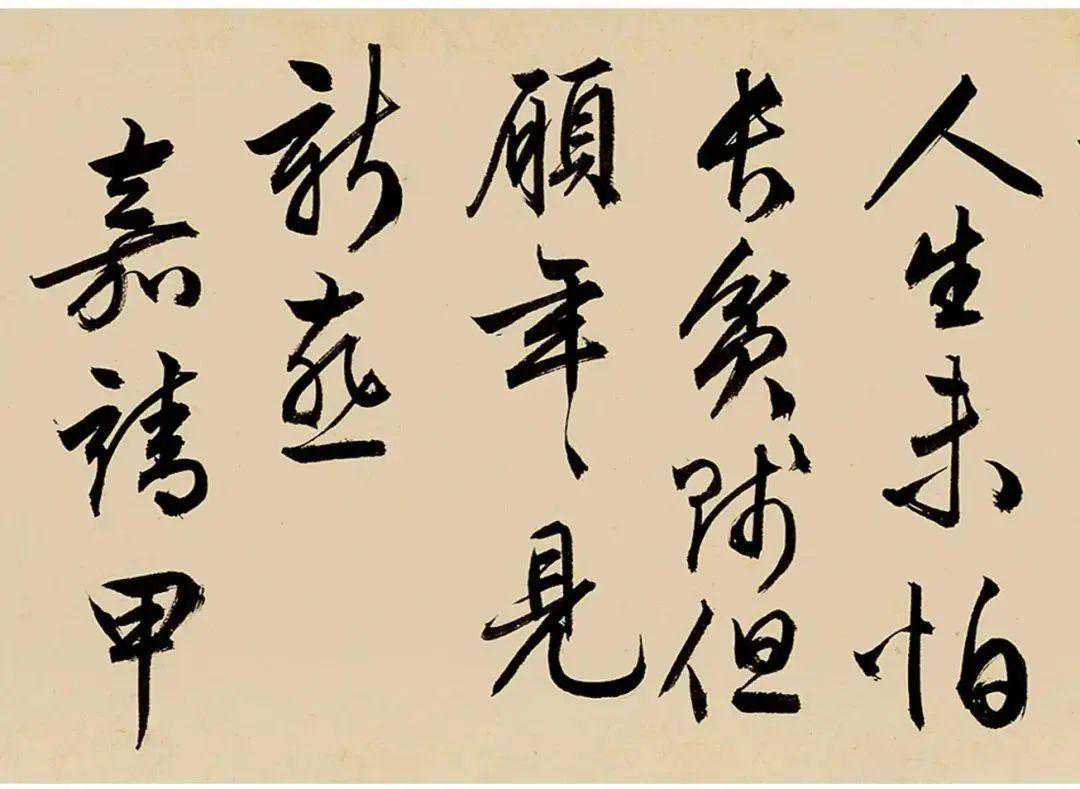 人生未怕
長貧賤但
願年〻見
新燕
嘉靖甲